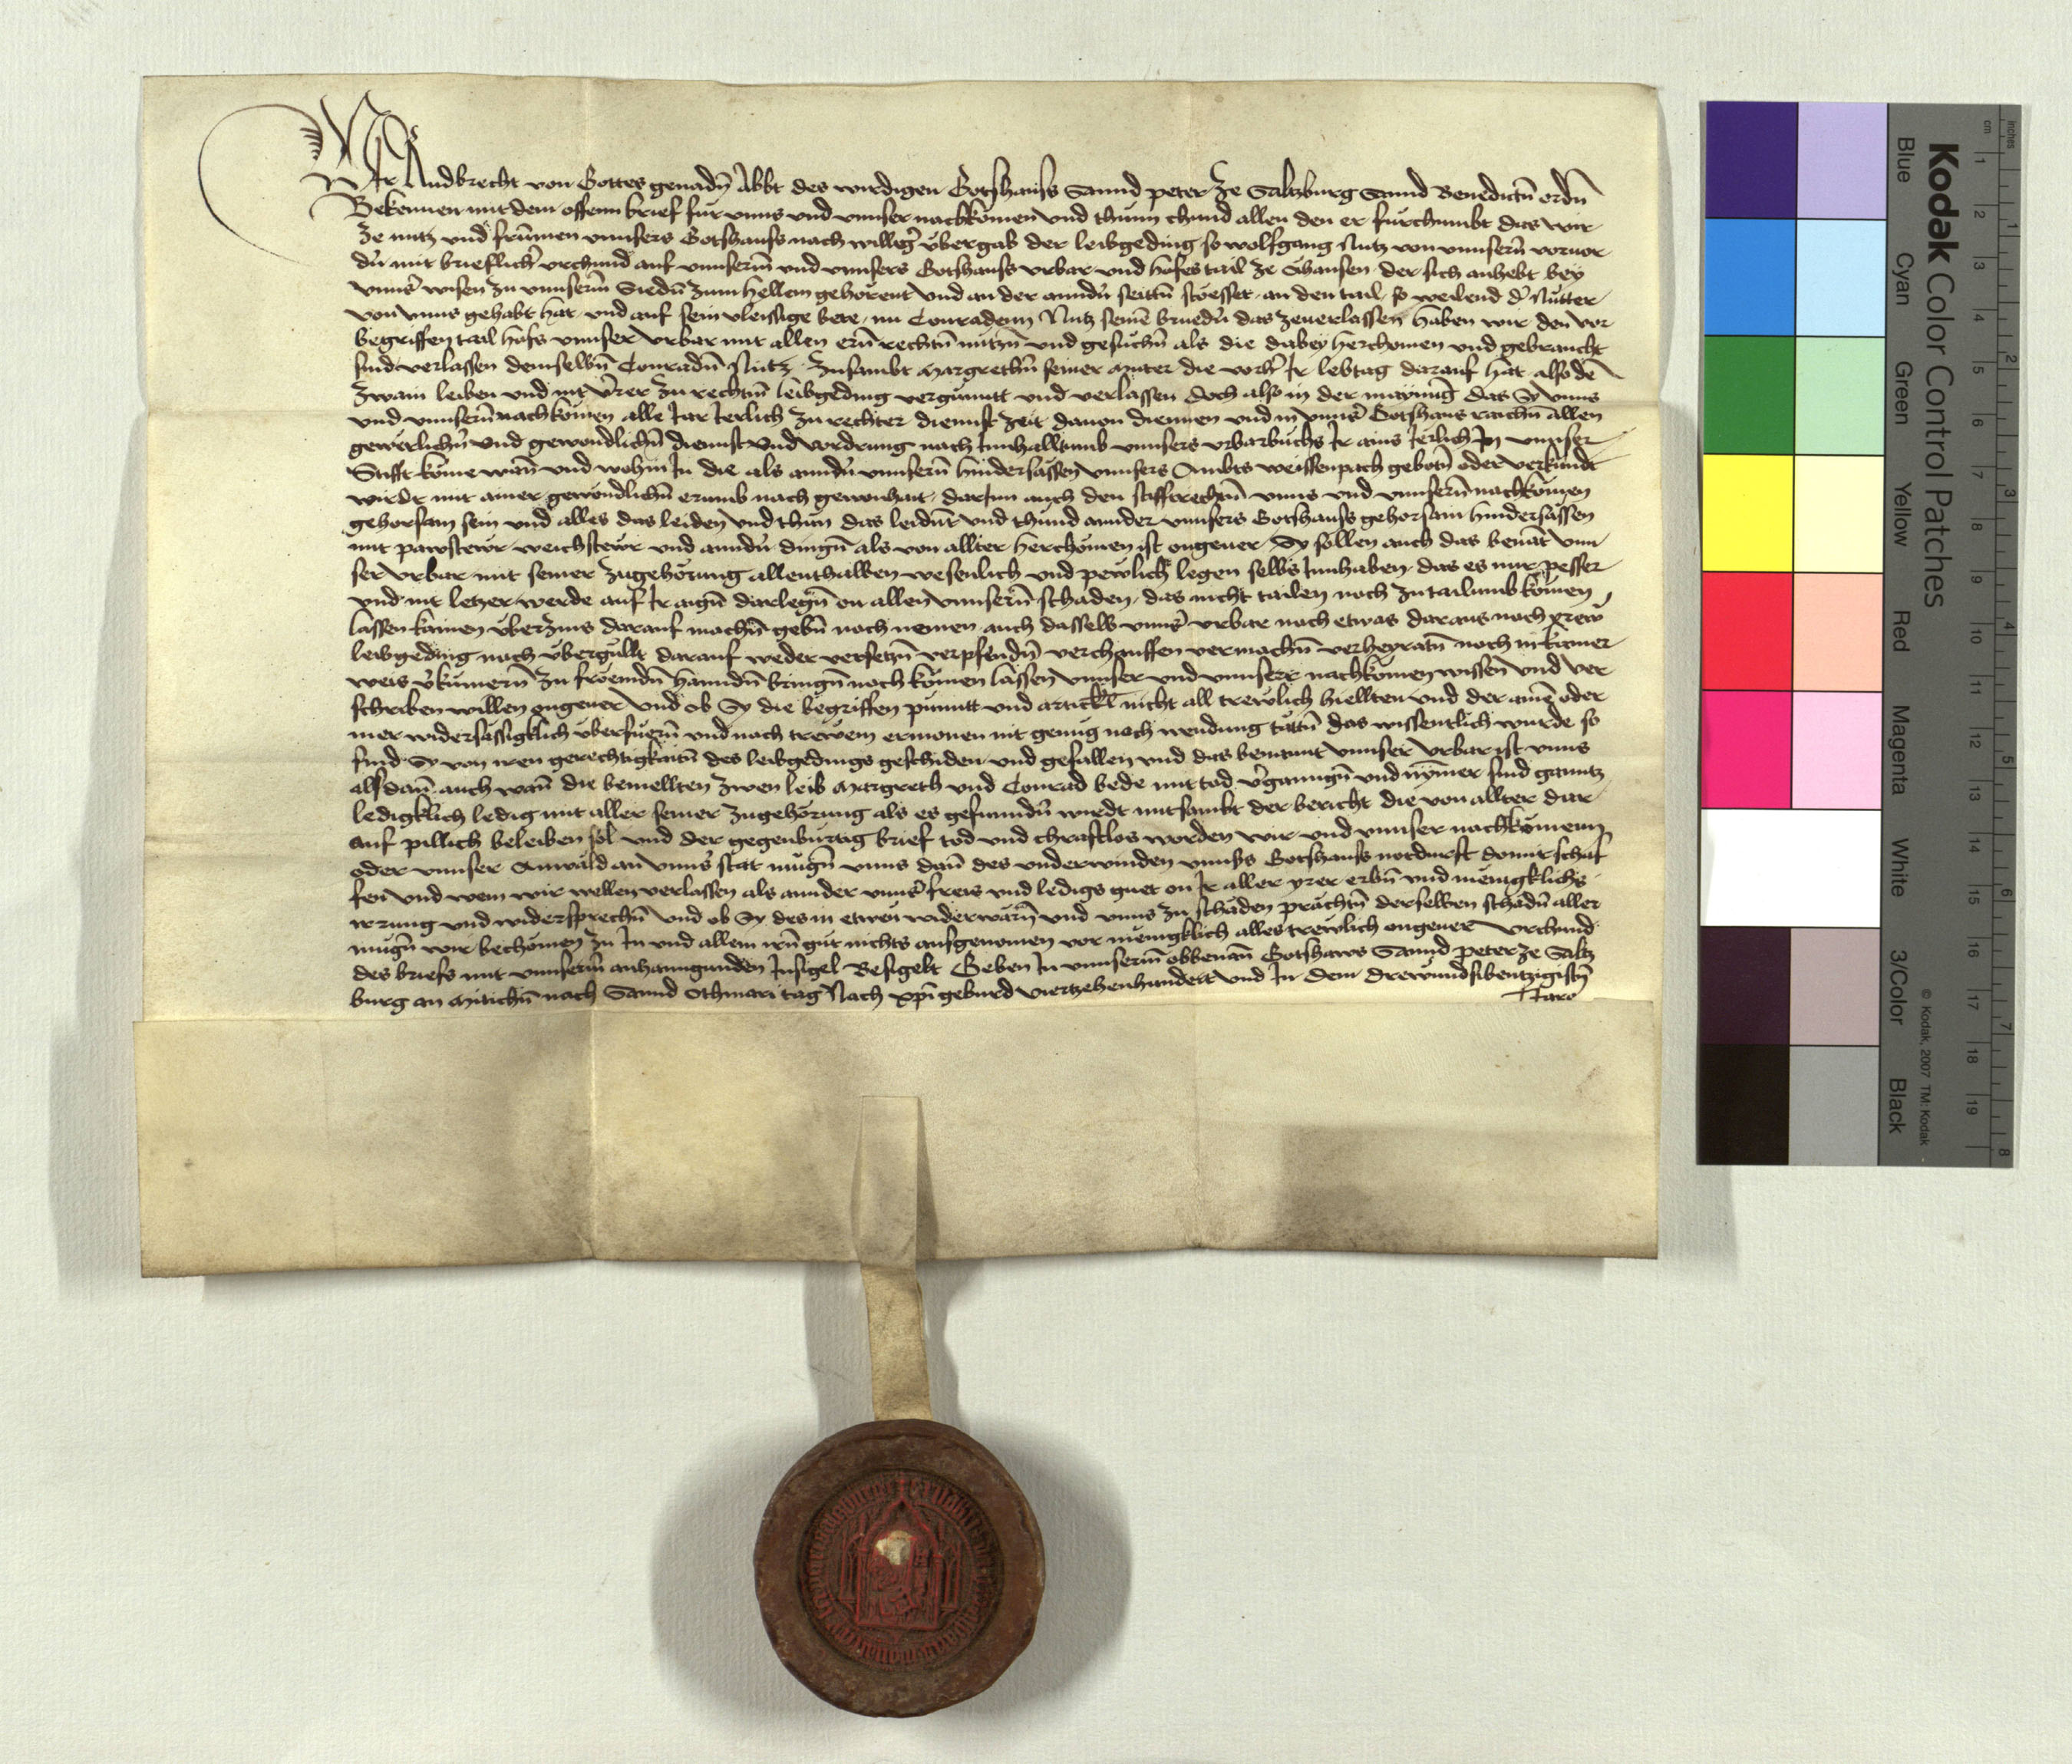 Wir Ruodbrecht von Gottes genadn̄ Abbt des wirdigen Gotshauss Sannd peter ze Saltzburg Sannd Benedictn̄ ordn̄
Bekennen mit dem offenn brief fur vnns vnd vnnser nachkömen vnd thunn chund allen den er furchumbt das wir
ze nutz vnd frúmen vnnsers Gotshauss nach willigr̄ v̈bergab der leibgeding so wolfgang Nutz von vnnsern̄ voruor
dn̄ mit brieflichr̄ vrchund auf vnnserm̄ vnd vnnsers Gotshauss vrbar vnd hofes tail ze Ghausen der sich anhebt bey
vnnsr̄ wisen zu vnnserm̄ Siedn̄ zum hellem gehörent vnd an der anndn̄ seittn̄ stoesset an den tail so weilend dr̄ Nutter
von vnns gehabt hat vnd auf sein vleissige bete im Conradenn Nutz seinē bruedr̄ das zeuerlassen haben wir den vor
begriffen tail hofs vnnser vrbar mit allen ern̄ rechtn̄ nutzn̄ vnd gesuchn̄ als die dabey herchomen vnd gebraucht
sind verlassen demselbn̄ Conradn̄ Nutz zusambt Margrethn̄ seiner Muter die vorhr̄ Ir lebtag darauf hat also dē
zwain leiben vnd nit v̈rer zu rechtm̄ leibgeding vergunntt vnd verlassen doch also in der maynūg das Sy vnns
vnd vnnsern̄ nachkömen alle Jar Jerlich zu rechter diennst zeit dauon diennen vnd in vnnsr̄ Gotshaus raichn̄ allen
gewerlichn̄ vnd gewondlichn̄ diennst vnd vordrung nach Innhalltumb vnnsers vrbarbuchs Ir ains Jerlich In vnnser
Stifft kome wan̄ vnd wohin In die als anndn̄ vnnsern̄ hindersassen vnnsers Ambts weissenpach gebotn̄ oder verkundt
wirdt mit ainer gewondlichn̄ erumb nach gewonhait darInn auch den stifftrechtn̄ vnns vnd vnnsern̄ nachkömen
gehorsam sein vnd alles das leiden vnd thun das leidnt vnd thund annder vnnsers Gotshauss gehorsam hindersassen
mit pawstewr weichstewr vnd anndn̄ dingn̄ als von allter herchömen ist ongeuer Sy sollen auch das benāt vnn
ser vrbar mit seiner zugehörung allenthalben wesenlich vnd pewlich legen selbs Innhaben das es nur pesser
vnd nit letzer werde auf Ir aign̄ darlegn̄ on allen vnnsern̄ schaden das nicht tailen noch zu tailumb kömen
lassen kainen v̈berzins darauf machn̄ gebn̄ noch nemen auch dasselb vnnsr̄ vrbar noch etwas daraus noch yrew
leibgeding noch v̈bergullt darauf weder versetzn̄ verpfendn̄ verchauffen vermachn̄ verheyratn̄ noch in kainer
weis v̄kumern̄ zu froemdn̄ hanndn̄ bringn̄ noch kömen lassen vnnser vnd vnnserr nachkömen wissen vnd ver
schriben willen ongeuer vnd ob Sy die begriffen punntt vnd artickl nicht all trewlich hiellten vnd der ainē oder
mer widersässigklich v̈berfuern̄ vnd nach trewem ermonen nit genug noch wendung tättn̄ das wissentlich wurde so
sind Sy von iren gerechtigkaitn̄ des leibgedings geschiden vnd gefallen vnd das benannt vnnser vrbar ist vnns
alsdan̄ auch wan̄ die bemellten zwen leib Margreth vnd Conrad bede mit tod v̄ganngn̄ vnd nymer sind ganntz
ledigklich ledig mit aller seiner zugehörung als es gefunndn̄ wirdt mitsambt der bericht die von allter dar
auf pillich beleiben sol vnd der gegenburtig brief tod vnd chraftlos worden wir vnd vnnser nachkömenn
oder vnnser Anwald an vnnsr̄ stat mugn̄ vnns dan̄ des vnderwinden vnnsrs Gotshauss notdurft domit schaf
fen vnd wem wir wellen verlassen als annder vnnsr̄ freis vnd ledigs guet on Ir aller yrer erbn̄ vnd mēnigklichs
irrung vnd widersprechn̄ vnd ob Sy des in etwew widerwärn̄ vnd vnns zu schaden prächtn̄ derselben schädn̄ aller
mugn̄ wir bechömen zu In vnd allem irm̄ gut nichts ausgenomen vor menigklich alles trewlich ongeuer vrchund
des briefs mit vnnserm̄ anhanngunden Insigel Besigelt Geben In vnnserm̄ obbenan̄ Gotshaws Sannd peter ze Saltz
burg an Mitichn̄ nach Sannd Othmari tag Nach xp̄i geburd viertzehenhundert vnd In dem drewundsibentzigistn̄
Jare
Kodak Color Control Patches
Blue Cyan Green Yellow Red Magenta White 3/Color Black
© Kodak, 2007 TM: Kodak
cm 1 2 3 4 5 6 7 8 9 10 11 12 13 14 15 16 17 18 19
Inches 1 2 3 4 5 6 7 8